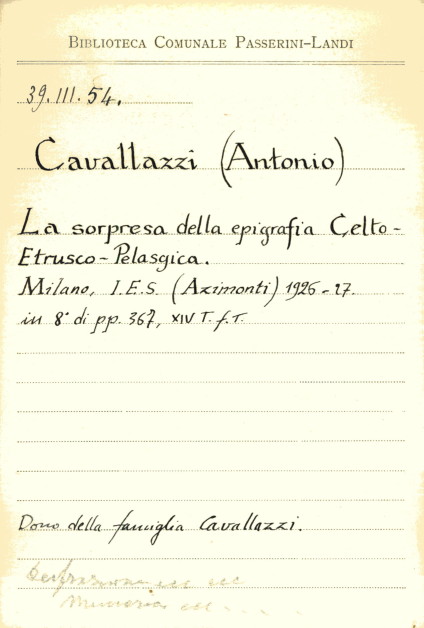 BIBLIOTECA COMUNALE PASSERINI-LANDI
39.III.54.
Cavallazzi (Antonio)
La sorpresa della epigrafia Celto-
Etrusco-Pelasgica.
Milano, I.E.S. (Azimonti) 1926-27.
in 8° di pp. 367, XIV T. f. T.
Dono della famiglia Cavallazzi.